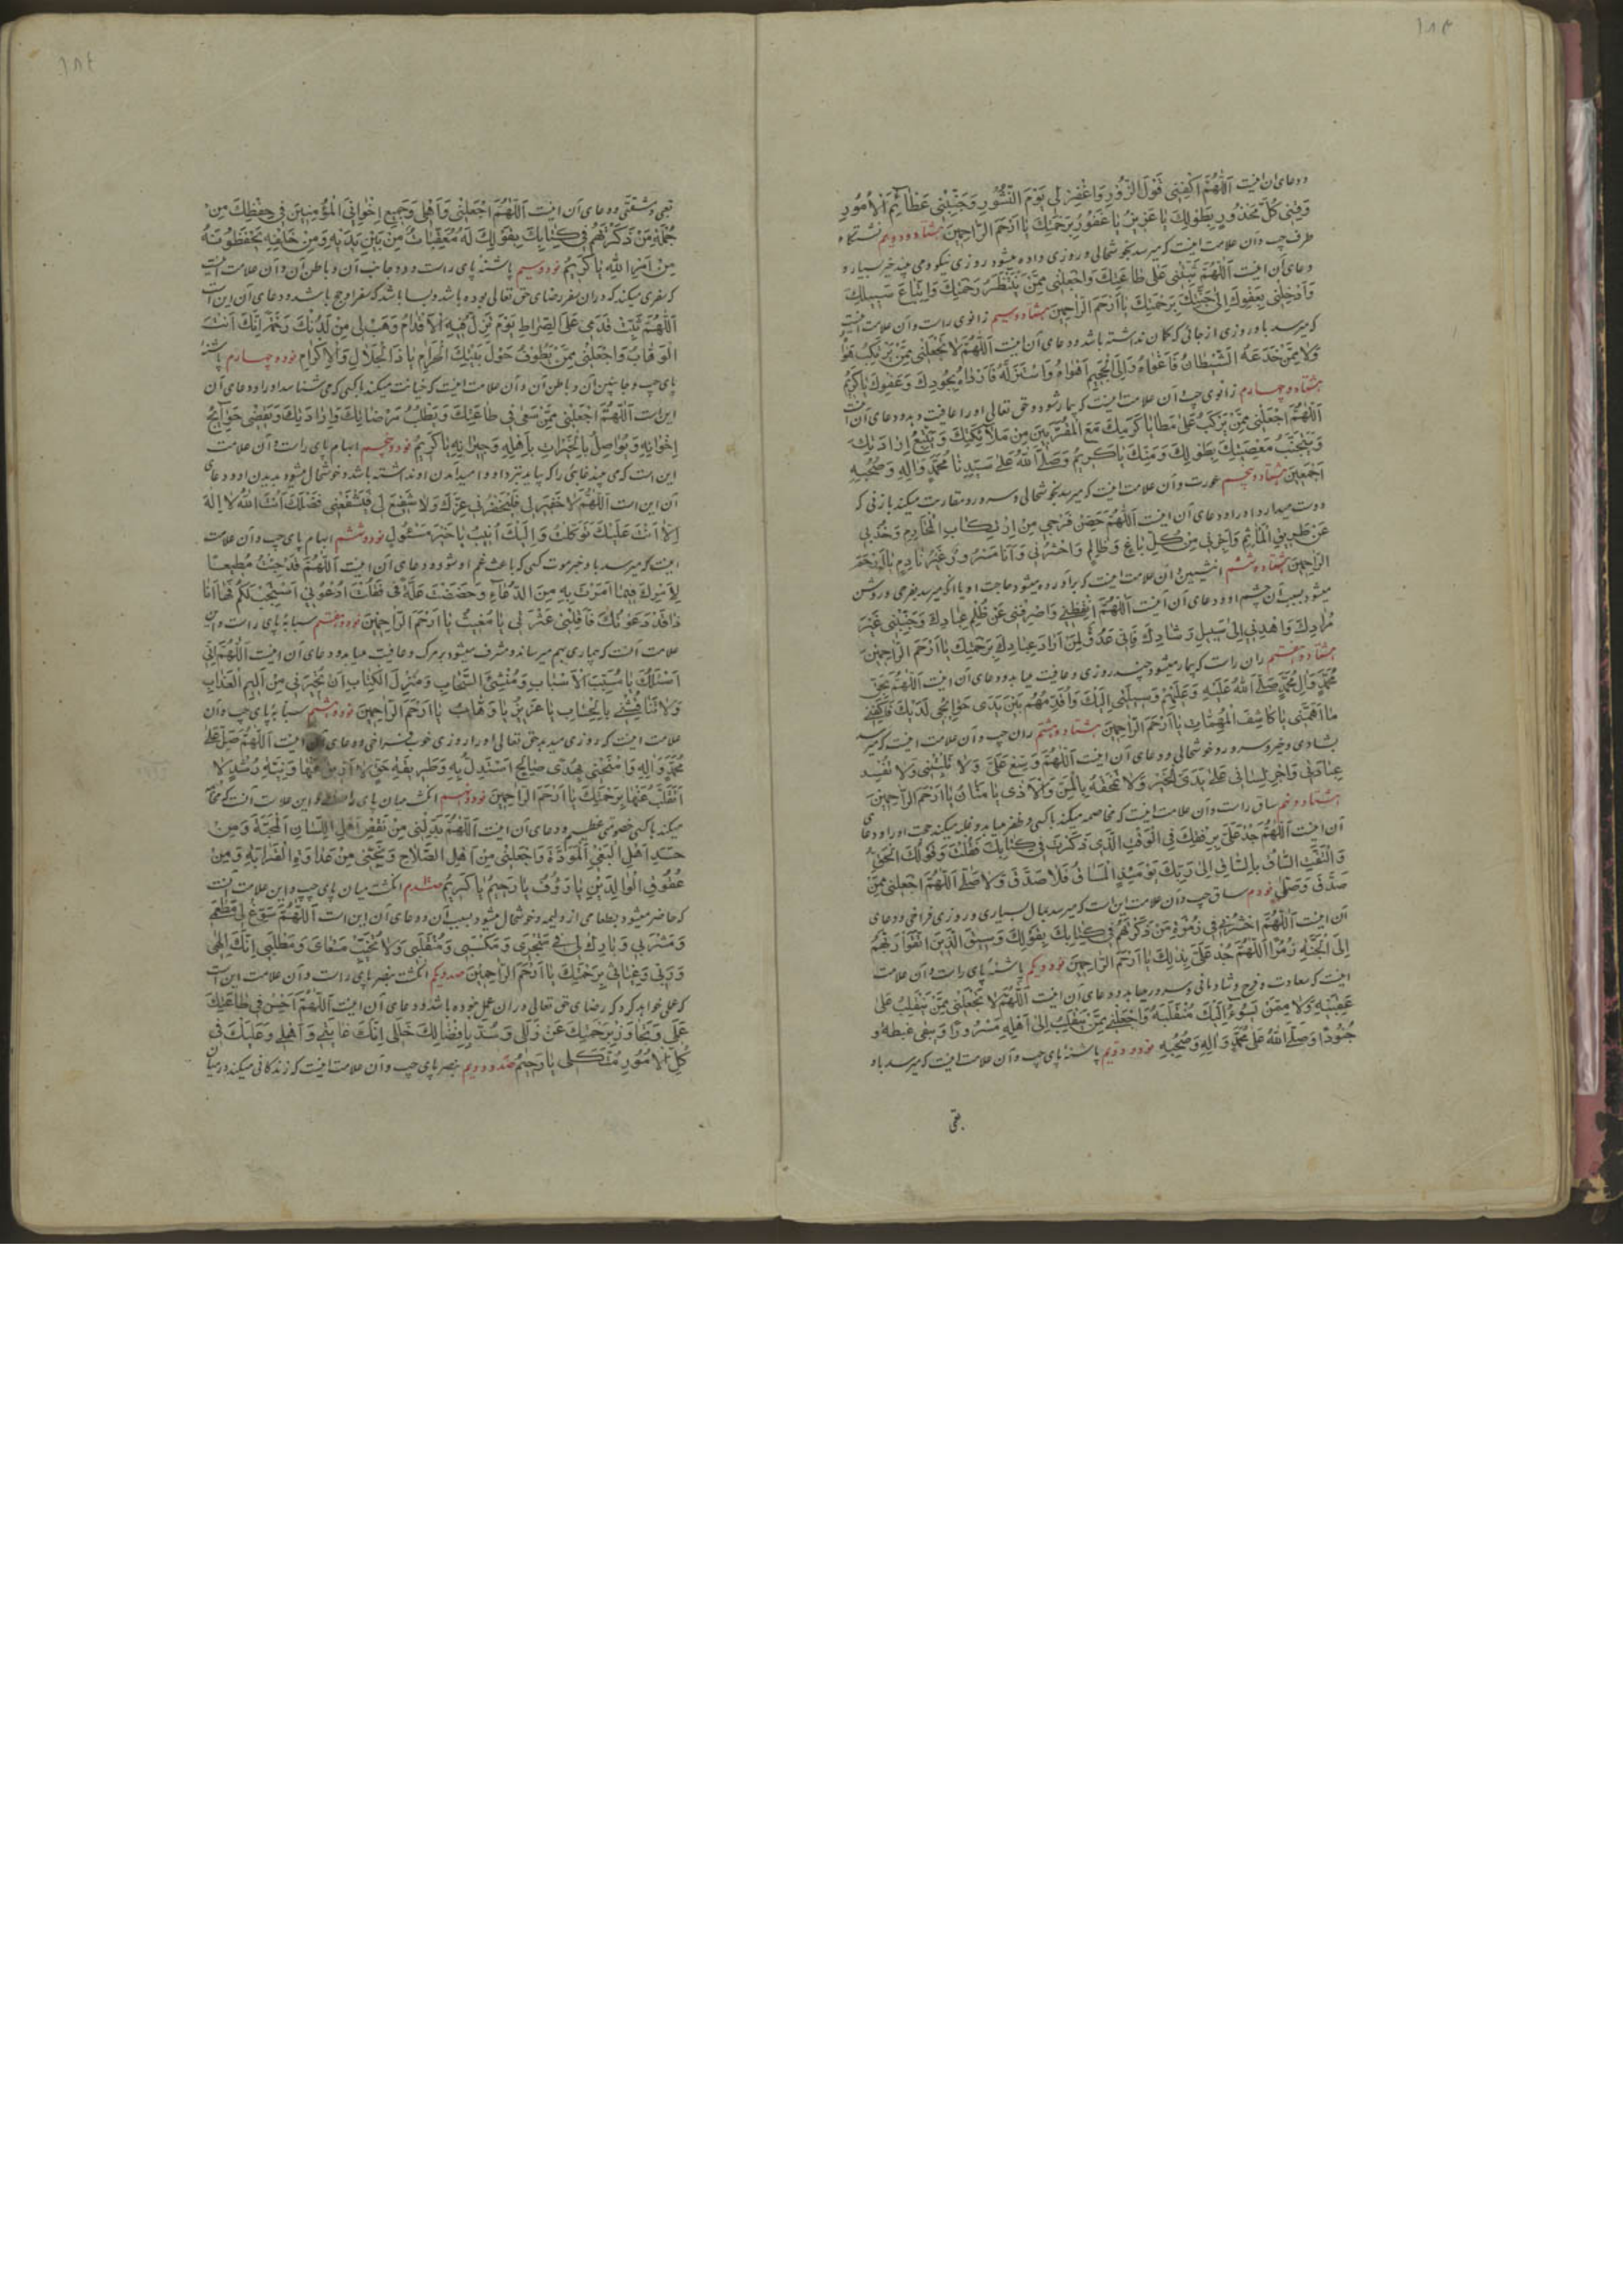 ١٨٣
و دعای آن اینست اَللّٰهُمَّ اکْفِنی قَوْلَ الزُّورِ وَاغْفِرْ لی یَوْمَ النُّشُورِ وَجَنِّبْنی عَظٰائِمَ الْاُمُورِ
وَقِنی کُلَّ مَحْذُورٍ بِطَوْلِكَ یٰا عَزیزُ یٰا غَفُورُ بِرَحْمَتِكَ یٰا اَرْحَمَ الرّٰاحِمینَ هشتاد و دویم نشستگاه
طرف چپ و آن علامت اینست که میرسد بخوشحالی و روزی داده میشود روزی نیکو و می بیند خیر بسیار و
دعای آن اینست اَللّٰهُمَّ ثَبِّتْنی عَلیٰ طٰاعَتِكَ وَاجْعَلْنی مِمَّنْ یَنْتَظِرُ رَحْمَتَكَ وَاتِّبٰاعَ سَبیلِكَ
وَاَدْخِلْنی بِعَفْوِكَ اِلیٰ جَنَّتِكَ بِرَحْمَتِكَ یٰا اَرْحَمَ الرّٰاحِمینَ هشتاد و سیم زانوی راست و آن علامت اینست
که میرسد باو روزی از جائی که گمان نداشته باشد و دعای آن اینست اَللّٰهُمَّ لاٰ تَجْعَلْنی مِمَّنْ یَرْتَکِبُ هَوٰاهُ
وَلاٰ مِمَّنْ خَدَعَهُ الشَّیْطٰانُ فَاَغْوٰاهُ وَاِلَی الْجَحیمِ اَهْوٰاهُ وَاسْتَزَلَّهُ فَاَرْدٰاهُ بِجُودِكَ وَعَفْوِكَ یٰا کَریمُ
هشتاد و چهارم زانوی چپ و آن علامت اینست که بیمار شود و حق تعالی او را عافیت دهد و دعای آن اینست
اَللّٰهُمَّ اجْعَلْنی مِمَّنْ یَرْکَبُ عَلیٰ مَطٰایٰا کَرَمِكَ مَعَ الْمُقَرَّبینَ مِنْ مَلاٰئِکَتِكَ وَیَتَّبِعُ اِرٰادَتَكَ
وَیَتَجَنَّبُ مَعْصِیَتَكَ بِطَوْلِكَ وَمَنِّكَ یٰا کَریمُ وَصَلَّی اللّٰهُ عَلیٰ سَیِّدِنٰا مُحَمَّدٍ وَاٰلِهِ وَصَحْبِهِ
اَجْمَعینَ هشتاد و پنجم عورت و آن علامت اینست که میرسد بخوشحالی و سرور و مقاربت میکند با زنی که
دوست میدارد او را و دعای آن اینست اَللّٰهُمَّ حَصِّنْ فَرْجی مِنِ ارْتِکٰابِ الْمَحٰارِمِ وَخُذْ بی
عَنْ طَریقِ الْمَاٰثِمِ وَاَجِرْنی مِنْ کُلِّ بٰاغٍ وَظٰالِمٍ وَاحْشُرْنی وَاَنٰا مَسْرُورٌ وَغَیْرُ نٰادِمٍ یٰا اَرْحَمَ
الرّٰاحِمینَ هشتاد و ششم انثیین و آن علامت اینست که برآورده میشود حاجت او یا آنکه میرسد بفرحی و روشن
میشود بسبب آن چشم او و دعای آن اینست اَللّٰهُمَّ اَیْقِظْنی وَاصْرِفْنی عَنْ ظُلْمِ عِبٰادِكَ وَجَنِّبْنی غَیْرَ
مُرٰادِكَ وَاهْدِنی اِلیٰ سَبیلِ رَشٰادِكَ فَاِنّی عَدُوٌّ لِمَنْ اَرٰادَ عِبٰادَكَ بِرَحْمَتِكَ یٰا اَرْحَمَ الرّٰاحِمینَ
هشتاد و هفتم ران راست که بیمار میشود چند روزی و عافیت مییابد و دعای آن اینست اَللّٰهُمَّ بِحَقِّ
مُحَمَّدٍ وَاٰلِ مُحَمَّدٍ صَلَّی اللّٰهُ عَلَیْهِ وَعَلَیْهِمْ وَسیلَتی اِلَیْكَ وَاُقَدِّمُهُمْ بَیْنَ یَدَیْ حَوٰائِجی لَدَیْكَ فَاکْفِنی
مٰا اَهَمَّنی یٰا کٰاشِفَ الْمُهِمّٰاتِ یٰا اَرْحَمَ الرّٰاحِمینَ هشتاد و هشتم ران چپ و آن علامت اینست که میرسد
بشادی و خیر و سرور و خوشحالی و دعای آن اینست اَللّٰهُمَّ وَسِّعْ عَلَیَّ وَلاٰ
عِبٰادَتی وَاَجْرِ لِسٰانی عَلیٰ یَدَیَّ الْخَیْرَ وَلاٰ تَمْحَقْهُ بِالْمَنِّ وَالْاَذیٰ یٰا مَنّٰانُ یٰا اَرْحَمَ الرّٰاحِمینَ
هشتاد و نهم ساق راست و آن علامت اینست که مخاصمه میکند با کسی و ظفر مییابد و غلبه میکند حجت او را و دعای
آن اینست اَللّٰهُمَّ جُدْ عَلَیَّ فِی الْوَقْتِ الَّذی ذَکَرْتَ فی کِتٰابِكَ فَقُلْتَ وَقَوْلُكَ الْحَقُّ
وَالْتَفَّتِ السّٰاقُ بِالسّٰاقِ اِلیٰ رَبِّكَ یَوْمَئِذٍ الْمَسٰاقُ فَلاٰ صَدَّقَ وَلاٰ صَلّیٰ اَللّٰهُمَّ اجْعَلْنی مِمَّنْ
صَدَّقَ وَصَلّیٰ نودم ساق چپ و آن علامت این است که میرسد بمال بسیاری و روزی فراخی و دعای
آن اینست اَللّٰهُمَّ احْشُرْنی فی زُمْرَةِ مَنْ ذَکَرْتَهُمْ فی کِتٰابِكَ بِقَوْلِكَ وَسیقَ الَّذینَ اتَّقَوْا رَبَّهُمْ
اِلَی الْجَنَّةِ زُمَرًا اَللّٰهُمَّ جُدْ عَلَیَّ بِذٰلِكَ یٰا اَرْحَمَ الرّٰاحِمینَ نود و یکم پاشنهٔ پای راست و آن علامت
اینست که سعادت و فرح و شادمانی و سرور مییابد و دعای آن اینست اَللّٰهُمَّ لاٰ تَجْعَلْنی مِمَّنْ یَنْقَلِبُ عَلیٰ
عَقِبَیْهِ وَلاٰ مِمَّنْ یَسُوءُ اِلَیْكَ مُنْقَلَبُهُ وَاجْعَلْنی مِمَّنْ یَنْقَلِبُ اِلیٰ اَهْلِهِ مَسْرُورًا وَیَبْقیٰ غِبْطَةً وَ
وَصَلَّی اللّٰهُ عَلیٰ مُحَمَّدٍ وَاٰلِهِ وَصَحْبِهِ نود و دویم پاشنهٔ پای چپ و آن علامت اینست که میرسد باو
تعبی
١٨٤
تعبی و مشقتی و دعای آن اینست اَللّٰهُمَّ اجْعَلْنی وَاَهْلی وَجَمیعَ اِخْوٰانِیَ الْمُؤْمِنینَ فی حِفْظِكَ مِنْ
جُمْلَةِ مَنْ ذَکَرْتَهُمْ فی کِتٰابِكَ بِقَوْلِكَ لَهُ مُعَقِّبٰاتٌ مِنْ بَیْنِ یَدَیْهِ وَمِنْ خَلْفِهِ یَحْفَظُونَهُ
مِنْ اَمْرِ اللّٰهِ یٰا کَریمُ نود و سیم پاشنهٔ پای راست و دو جانب آن و باطن آن و آن علامت اینست
که سفری میکند که در آن سفر رضای حق تعالی بوده باشد و بسا باشد که سفر او حج باشد و دعای آن این است
اَللّٰهُمَّ ثَبِّتْ قَدَمی عَلَی الصِّرٰاطِ یَوْمَ تَزِلُّ فیهِ الْاَقْدٰامُ وَهَبْ لی مِنْ لَدُنْكَ اِنَّكَ اَنْتَ
الْوَهّٰابُ وَاجْعَلْنی مِمَّنْ یَطُوفُ حَوْلَ بَیْتِكَ الْحَرٰامِ یٰا ذَا الْجَلاٰلِ وَالْاِکْرٰامِ نود و چهارم پاشنهٔ
پای چپ و جانبین آن و باطن آن و آن علامت اینست که خیانت میکند با کسی که می شناسد او را و دعای آن
این است اَللّٰهُمَّ اجْعَلْنی مِمَّنْ سَعیٰ فی طٰاعَتِكَ وَیَطْلُبُ مَرْضٰاتَكَ وَاِرٰادَتَكَ وَیَقْضی حَوٰائِجَ
اِخْوٰانِهِ وَیُوٰاصِلُ بِالْخَیْرٰاتِ بِاَهْلِهِ وَجیرٰانِهِ یٰا کَریمُ نود و پنجم ابهام پای راست و آن علامت
این است که می بیند غایبی را که بیاید بنزد او و امید آمدن او نداشته باشد و خوشحال میشود بدیدن او و دعای
آن این است اَللّٰهُمَّ لاٰ خَفیرَ لی فَیَخْفُرُنی عِزُّكَ وَلاٰ شَفیعَ لی فَلْیَشْفَعْنی فَضْلُكَ اَنْتَ اللّٰهُ لاٰ اِلٰهَ
اِلاّٰ اَنْتَ عَلَیْكَ تَوَکَّلْتُ وَاِلَیْكَ اُنیبُ یٰا خَیْرَ مَسْئُولٍ نود و ششم ابهام پای چپ و آن علامت
اینست که میرسد باو خبر موت کسی که باعث غم او شود و دعای آن اینست اَللّٰهُمَّ قَدْ جِئْتُ مُطیعًا
لِاَمْرِكَ فیمٰا اَمَرْتَ بِهِ مِنَ الدُّعٰاءِ وَحَضَضْتَ عَلَیْهِ فَقُلْتَ اُدْعُونی اَسْتَجِبْ لَکُمْ فَهٰا اَنَا
ذٰا قَدْ دَعَوْتُكَ فَاَقِلْنی عَثْرَتی یٰا مُغیثُ یٰا اَرْحَمَ الرّٰاحِمینَ نود و هفتم سبابهٔ پای راست و این
علامت آنست که بیماری بهم میرساند و مشرف میشود بر مرگ و عافیت مییابد و دعای آن اینست اَللّٰهُمَّ اِنّی
اَسْئَلُكَ یٰا مُسَبِّبَ الْاَسْبٰابِ وَمُنْشِئَ السَّحٰابِ وَمُنْزِلَ الْکِتٰابِ اَنْ تُجیرَنی مِنْ اَلیمِ الْعَذٰابِ
وَلاٰ تُنٰاقِشْنی بِالْحِسٰابِ یٰا عَزیزُ یٰا وَهّٰابُ یٰا اَرْحَمَ الرّٰاحِمینَ نود و هشتم سبابهٔ پای چپ و آن
علامت اینست که روزی میدهد حق تعالی او را روزی خوب فراخی و دعای آن اینست اَللّٰهُمَّ صَلِّ عَلیٰ
مُحَمَّدٍ وَاٰلِهِ وَامْنَحْنی بِهُدًی صٰالِحٍ اَسْتَدِلُّ بِهِ وَطَریقَةِ حَقٍّ لاٰ عَنْهٰا وَنِیَّةِ رُشْدٍ لاٰ
اَنْقَلِبُ عَنْهٰا بِرَحْمَتِكَ یٰا اَرْحَمَ الرّٰاحِمینَ نود و نهم انگشت میان پای راست و این علامت آنست که مخاصمه
میکند با کسی خصومتی عظیم و دعای آن اینست اَللّٰهُمَّ بَدِّلْنی مِنْ بُغْضِ اَهْلِ الْمَحَبَّةَ وَمِنْ
حَسَدِ اَهْلِ الْبَغْیِ الْمَوَدَّةَ وَاجْعَلْنی مِنْ اَهْلِ الصَّلاٰحِ وَنَجِّنی مِنْ عَدٰاوَةِ الْقَرٰابَةِ وَمِنْ
عُقُوقِ الْوٰالِدَیْنِ یٰا رَؤُفُ یٰا رَحیمُ یٰا کَریمُ صدم انگشت میان پای چپ و این علامت آنست
که حاضر میشود بطعامی از ولیمه و خوشحال میشود بسبب آن و دعای آن این است اَللّٰهُمَّ سَوِّغْ لی مَطْعَمی
وَمَشْرَبی وَبٰارِكْ لی فی مَتْجَری وَمَکْسَبی وَمُنْقَلَبی وَلاٰ تُخَیِّبْ مَسْعٰایَ وَمَطْلَبی اِنَّكَ اِلٰهی
وَرَبّی وَغِیٰاثی بِرَحْمَتِكَ یٰا اَرْحَمَ الرّٰاحِمینَ صد و یکم انگشت بنصر پای راست و آن علامت این است
که عملی خواهد کرد که رضای حق تعالی در آن عمل بوده باشد و دعای آن اینست اَللّٰهُمَّ اَحْسِنْ فی طٰاعَتِكَ
عَمَلی وَتَجٰاوَزْ بِرَحْمَتِكَ عَنْ زَلَلی وَسُدَّ بِاِفْضٰالِكَ خَلَلی اِنَّكَ غٰایَتی وَاَمَلی وَعَلَیْكَ فی
کُلِّ الْاُمُورِ مُتَّکَلی یٰا رَحیمُ صد و دویم بنصر پای چپ و آن علامت اینست که زندگانی میکند در میان